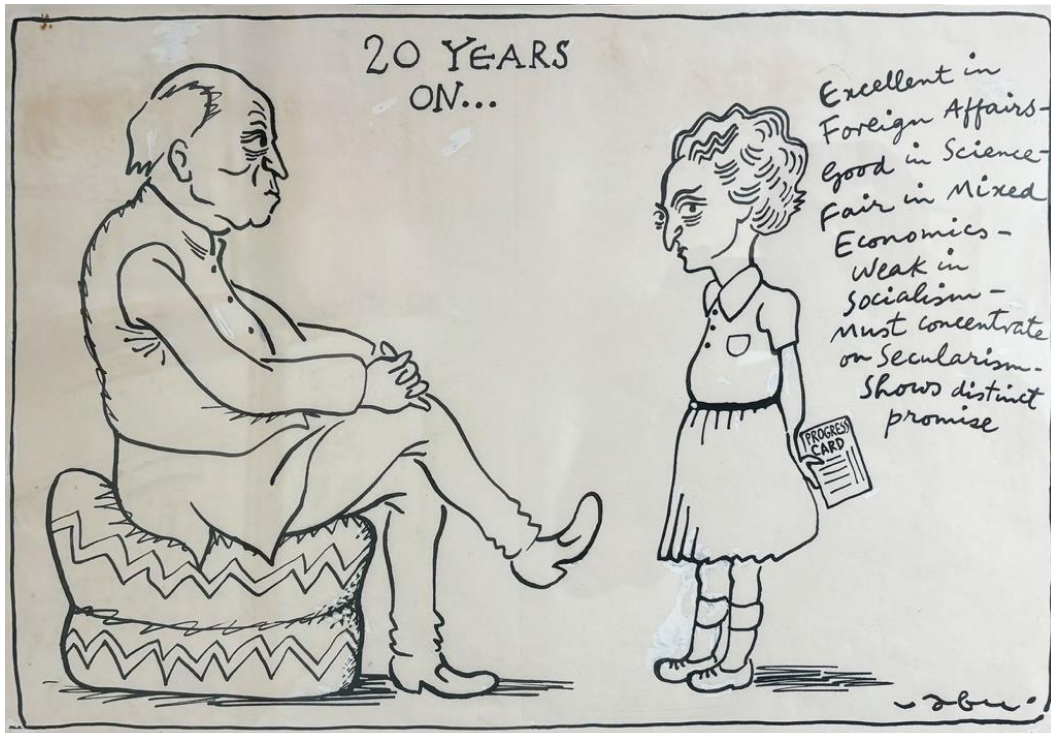 20 YEARS
ON...
Excellent in
Foreign Affairs-
Good in Science-
Fair in Mixed
Economics-
Weak in
Socialism-
Must concentrate
on Secularism-
Shows distinct
promise
PROGRESS
CARD
abu